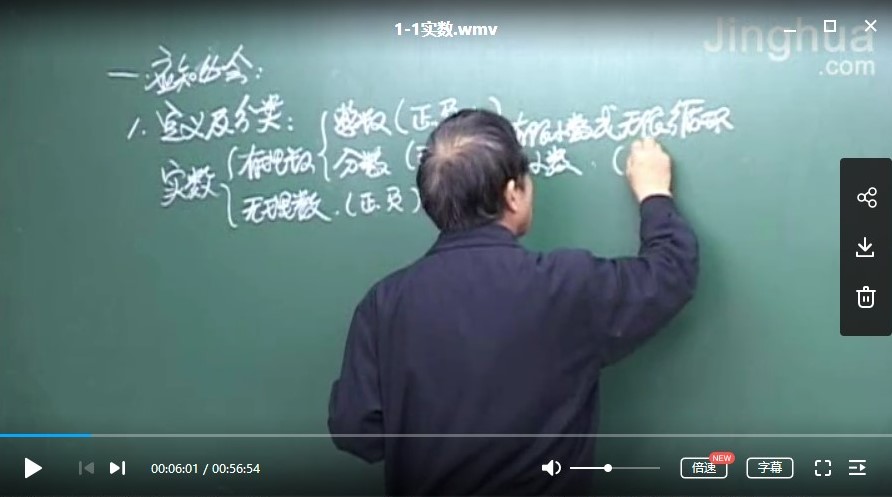 1-1实数.wmv
Jinghua
.com
一.应知必会:
1. 定义及分类: 整数(正.负 有限小数或无限循环
实数 有理数 分数( 小数.(
无理数.(正.负)
00:06:01 / 00:56:54
倍速
NEW
字幕